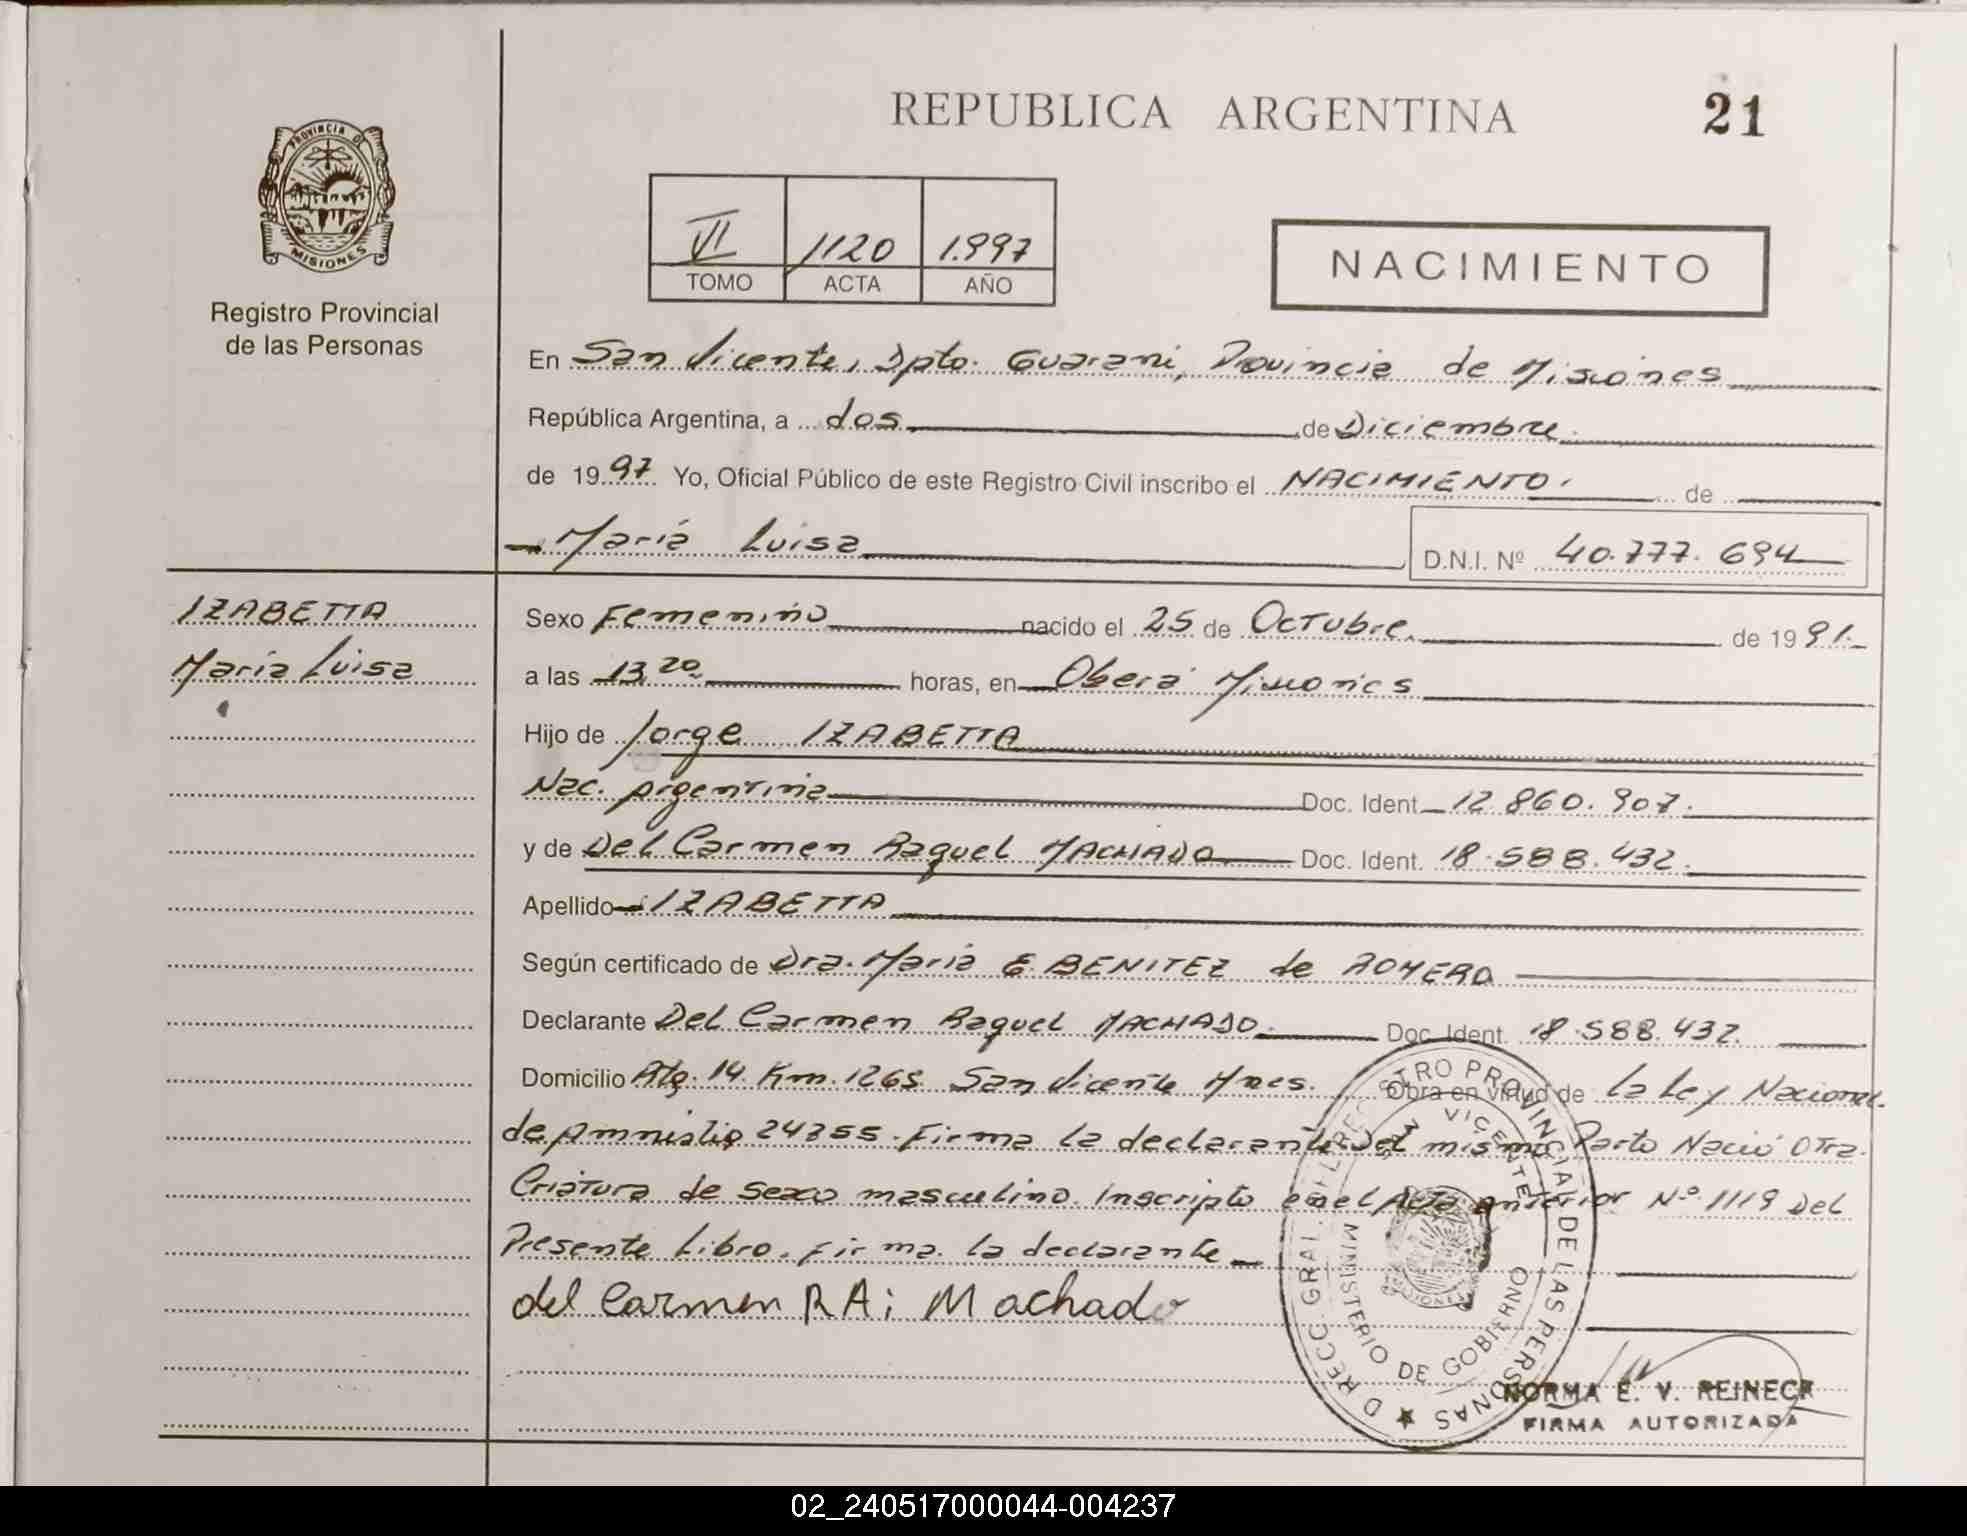 REPUBLICA ARGENTINA
21
PROVINCIA DE
MISIONES
Registro Provincial
de las Personas
VI 1120 1.997
TOMO ACTA AÑO
NACIMIENTO
En San Vicente, Dpto. Guarani, Provincia de Misiones
República Argentina, a dos de Diciembre
de 1997 Yo, Oficial Público de este Registro Civil inscribo el NACIMIENTO. de
María Luisa
D.N.I. Nº 40.777.694
IZABETTA
María Luisa
Sexo Femenino nacido el 25 de Octubre de 1991.
a las 13,20 horas, en Oberá Misiones
Hijo de Jorge IZABETTA
Nac. Argentina Doc. Ident 12.860.907.
y de Del Carmen Raquel MACHADO Doc. Ident. 18.588.432.
Apellido IZABETTA
Según certificado de Dra. María E. BENITEZ de ROMERO
Declarante Del Carmen Raquel MACHADO Doc. Ident. 18.588.432.
Domicilio 14 Km. 1265 San Vicente Mnes. Obra en virtud de la Ley Nacional
de Amnistia 24355. Firma la declarante Del mismo Parto Nació Otra
Criatura de sexo masculino. Inscripto en el Acta anterior Nº 1119 Del
Presente Libro. Firma la declarante
del Carmen RAi Machado
PROVINCIAL DE LAS PERSONAS
VICENTE
MINISTERIO DE GOBIERNO
NORMA E. V. REINECK
FIRMA AUTORIZADA
02_240517000044-004237